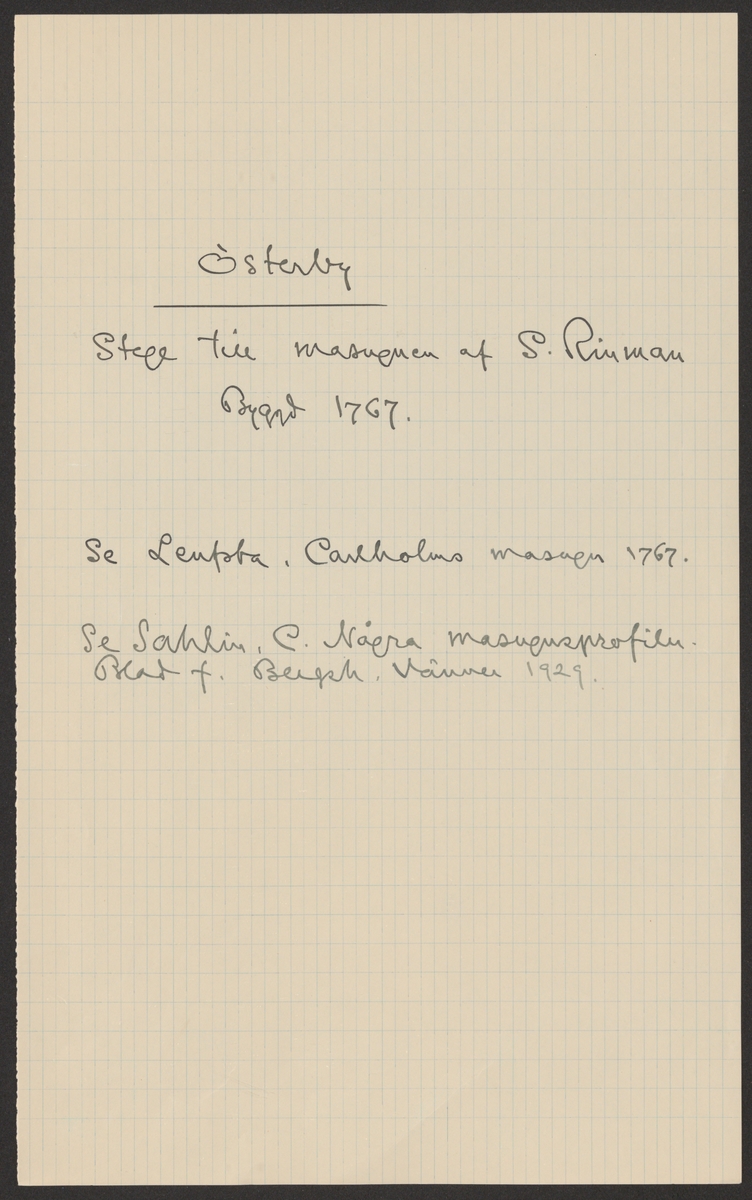 Österby
Stege till masugnen af S. Rinman
Byggd 1767.
Se Leufsta, Carlholms masugn 1767.
Se Sahlin, C. Några masugnsprofiler.
Blad f. Bergsh. Vänner 1929.